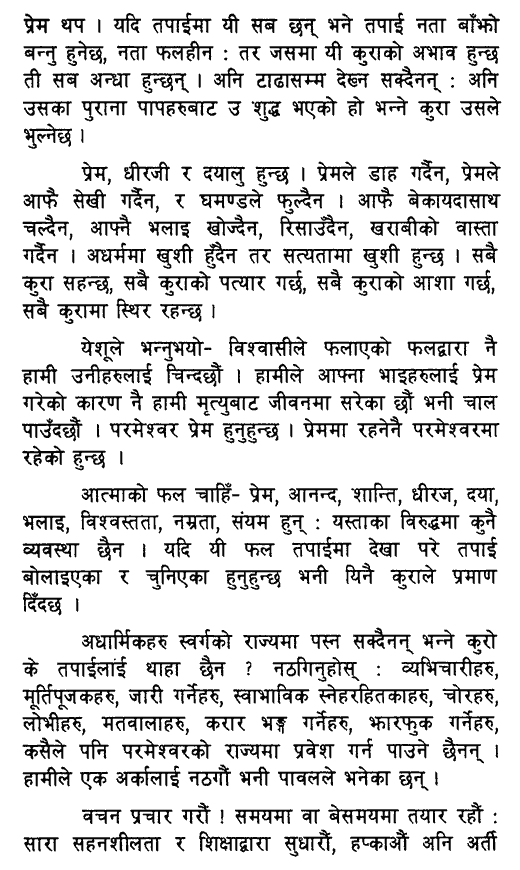 प्रेम थप । यदि तपाईमा यी सब छन् भने तपाई नता बाँझो
बन्नु हुनेछ, नता फलहीन : तर जसमा यी कुराको अभाव हुन्छ
ती सब अन्धा हुन्छन् । अनि टाढासम्म देख्न सक्दैनन् : अनि
उसका पुराना पापहरुबाट उ शुद्ध भएको हो भन्ने कुरा उसले
भुल्नेछ ।
प्रेम, धीरजी र दयालु हुन्छ । प्रेमले डाह गर्दैन, प्रेमले
आफै सेखी गर्दैन, र घमण्डले फुल्दैन । आफै बेकायदासाथ
चल्दैन, आफ्नै भलाइ खोज्दैन, रिसाउँदैन, खराबीको वास्ता
गर्दैन । अधर्ममा खुशी हुँदैन तर सत्यतामा खुशी हुन्छ । सबै
कुरा सहन्छ, सबै कुराको पत्यार गर्छ, सबै कुराको आशा गर्छ,
सबै कुरामा स्थिर रहन्छ ।
येशूले भन्नुभयो- विश्वासीले फलाएको फलद्वारा नै
हामी उनीहरुलाई चिन्दछौं । हामीले आफ्ना भाइहरुलाई प्रेम
गरेको कारण नै हामी मृत्युबाट जीवनमा सरेका छौं भनी चाल
पाउँदछौं । परमेश्वर प्रेम हुनुहुन्छ । प्रेममा रहनेनै परमेश्वरमा
रहेको हुन्छ ।
आत्माको फल चाहिँ- प्रेम, आनन्द, शान्ति, धीरज, दया,
भलाइ, विश्वस्तता, नम्रता, संयम हुन् : यस्ताका विरुद्धमा कुनै
व्यवस्था छैन । यदि यी फल तपाईमा देखा परे तपाई
बोलाइएका र चुनिएका हुनुहुन्छ भनी यिनै कुराले प्रमाण
दिँदछ ।
अधार्मिकहरु स्वर्गको राज्यमा पस्न सक्दैनन् भन्ने कुरो
के तपाईलाई थाहा छैन ? नठगिनुहोस् : व्यभिचारीहरु,
मूर्तिपूजकहरु, जारी गर्नेहरु, स्वाभाविक स्नेहरहितकाहरु, चोरहरु,
लोभीहरु, मतवालाहरु, करार भङ्ग गर्नेहरु, झारफुक गर्नेहरु,
कसैले पनि परमेश्वरको राज्यमा प्रवेश गर्न पाउने छैनन् ।
हामीले एक अर्कालाई नठगौं भनी पावलले भनेका छन् ।
वचन प्रचार गरौं ! समयमा वा बेसमयमा तयार रहौं :
सारा सहनशीलता र शिक्षाद्वारा सुधारौं, हप्काऔं अनि अर्ती